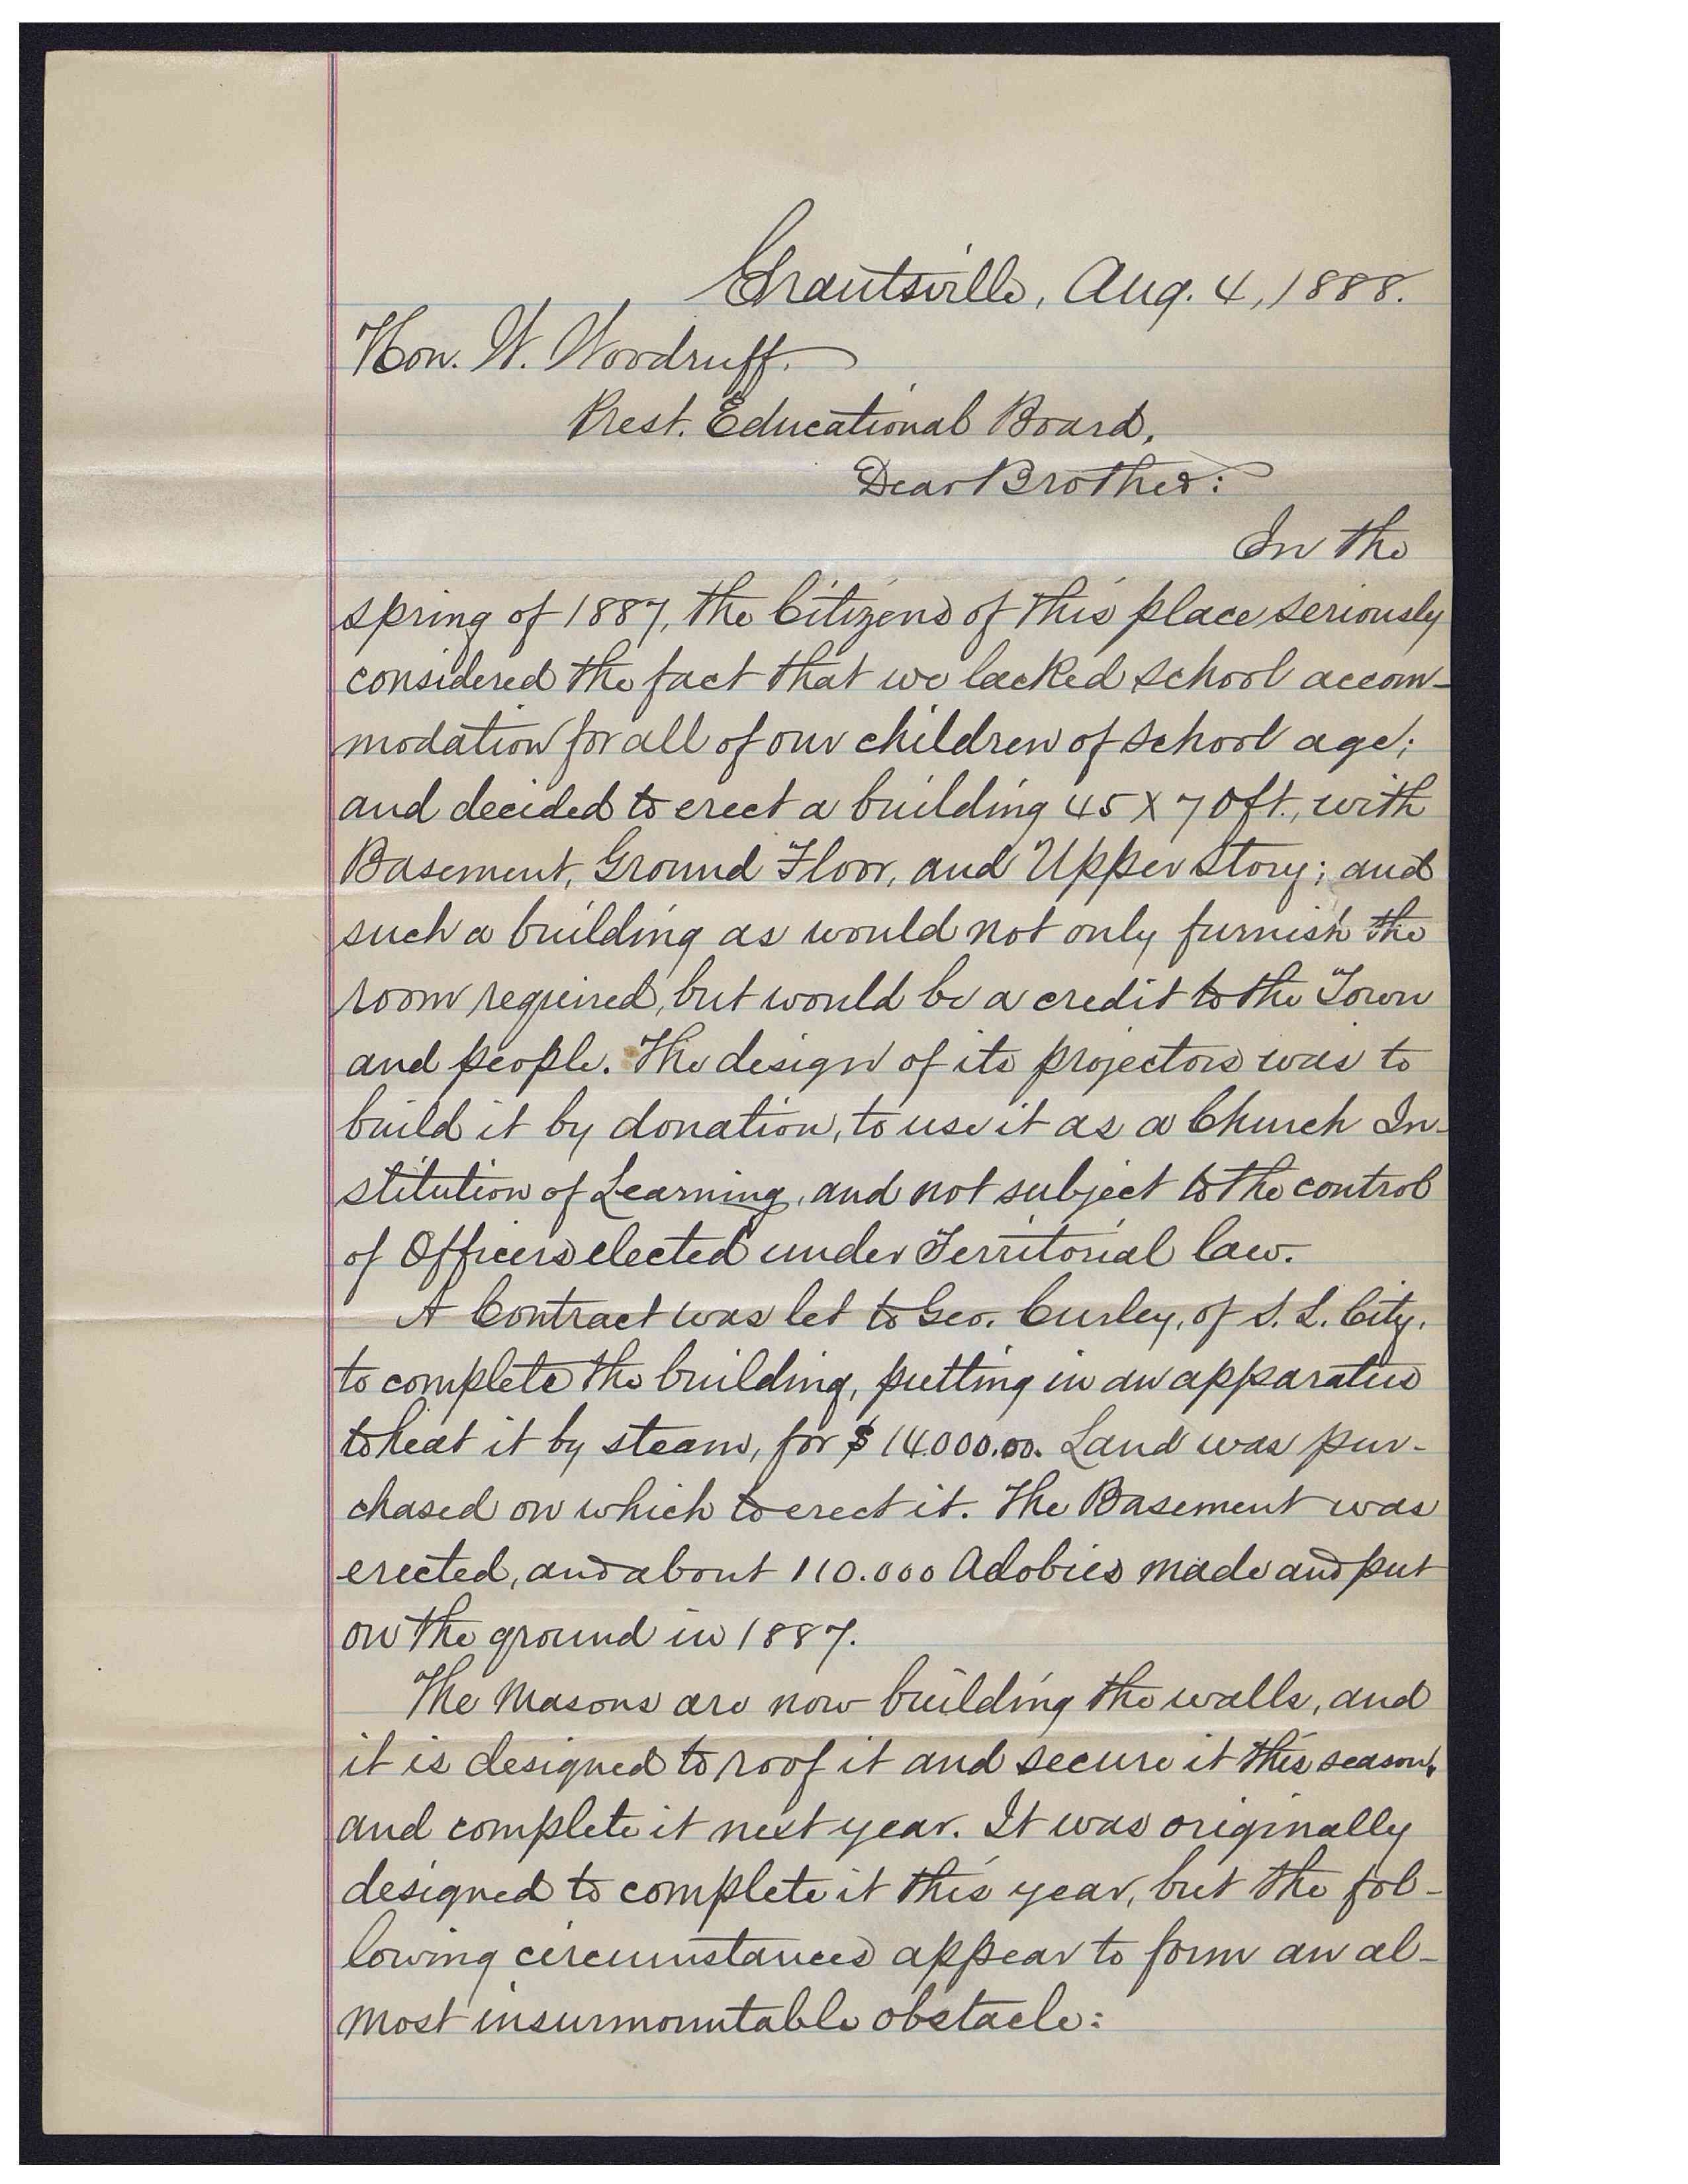 Grantsville, Aug. 4, 1888.
Hon. W. Woodruff.
Prest. Educational Board,
Dear Brother:
In the
spring of 1887, the Citizens of this place seriously
considered the fact that we lacked school accom-
modation for all of our children of school age;
and decided to erect a building 45 x 70 ft., with
Basement, Ground Floor, and Upper Story; and
such a building as would not only furnish the
room required, but would be a credit to the Town
and people. The design of its projectors was to
build it by donation, to use it as a Church In-
stitution of Learning, and not subject to the control
of Officers elected under Territorial law.
A Contract was let to Geo. Curley, of S. L. City,
to complete the building, putting in an apparatus
to heat it by steam, for $14.000.00. Land was pur-
chased on which to erect it. The Basement was
erected, and about 110.000 Adobies made and put
on the ground in 1887.
The Masons are now building the walls, and
it is designed to roof it and secure it this season,
and complete it next year. It was originally
designed to complete it this year, but the fol-
lowing circumstances appear to form an al-
most insurmountable obstacle: